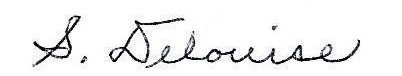 S. Delouise